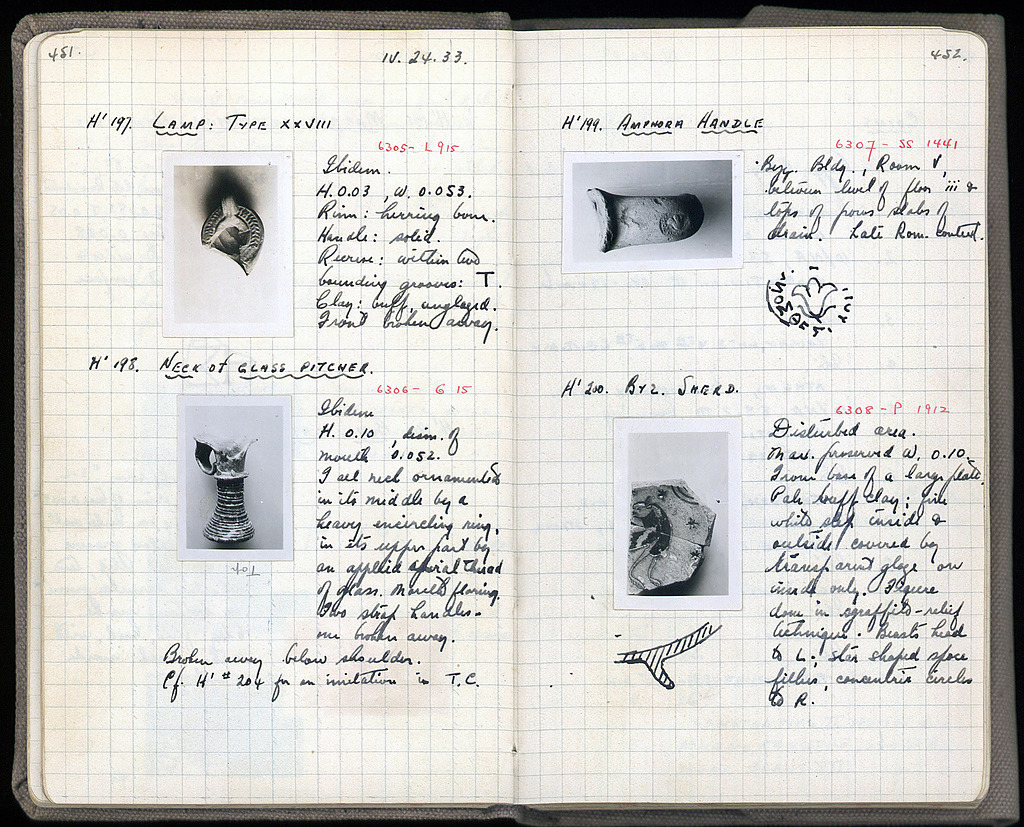 451.
IV. 24. 33.
H' 197. LAMP: TYPE XXVIII
6305 - L 915
Ibidem.
H. 0.03, W. 0.053.
Rim: herring bone.
Handle: solid.
Reverse: within two
bounding grooves: T.
Clay: buff, unglazed.
Front broken away.
H' 198. NECK of GLASS PITCHER.
6306 - G 15
Ibidem
H. 0.10, diam. of
mouth 0.052.
Tall neck ornamented
in its middle by a
heavy encircling ring,
in its upper part by
an applied spiral thread
of glass. Mouth flaring.
Two strap handles -
one broken away.
Top
Broken away below shoulder.
Cf. H' # 204 for an imitation in T.C.
452.
H' 199. AMPHORA HANDLE
6307 - SS 1441
Byz. Bldg., Room V,
between level of floor iii &
tops of poros slabs of
drain. Late Rom. context.
H' 200. BYZ. SHERD.
6308 - P 1912
Disturbed area.
Max. preserved W. 0.10.
From base of a large plate.
Pale buff clay; fine
white slip inside &
outside covered by
transparent glaze on
inside only. Figure
done in sgraffito-relief
technique. Beasts head
to L; star shaped space
filler, concentric circles
to R.